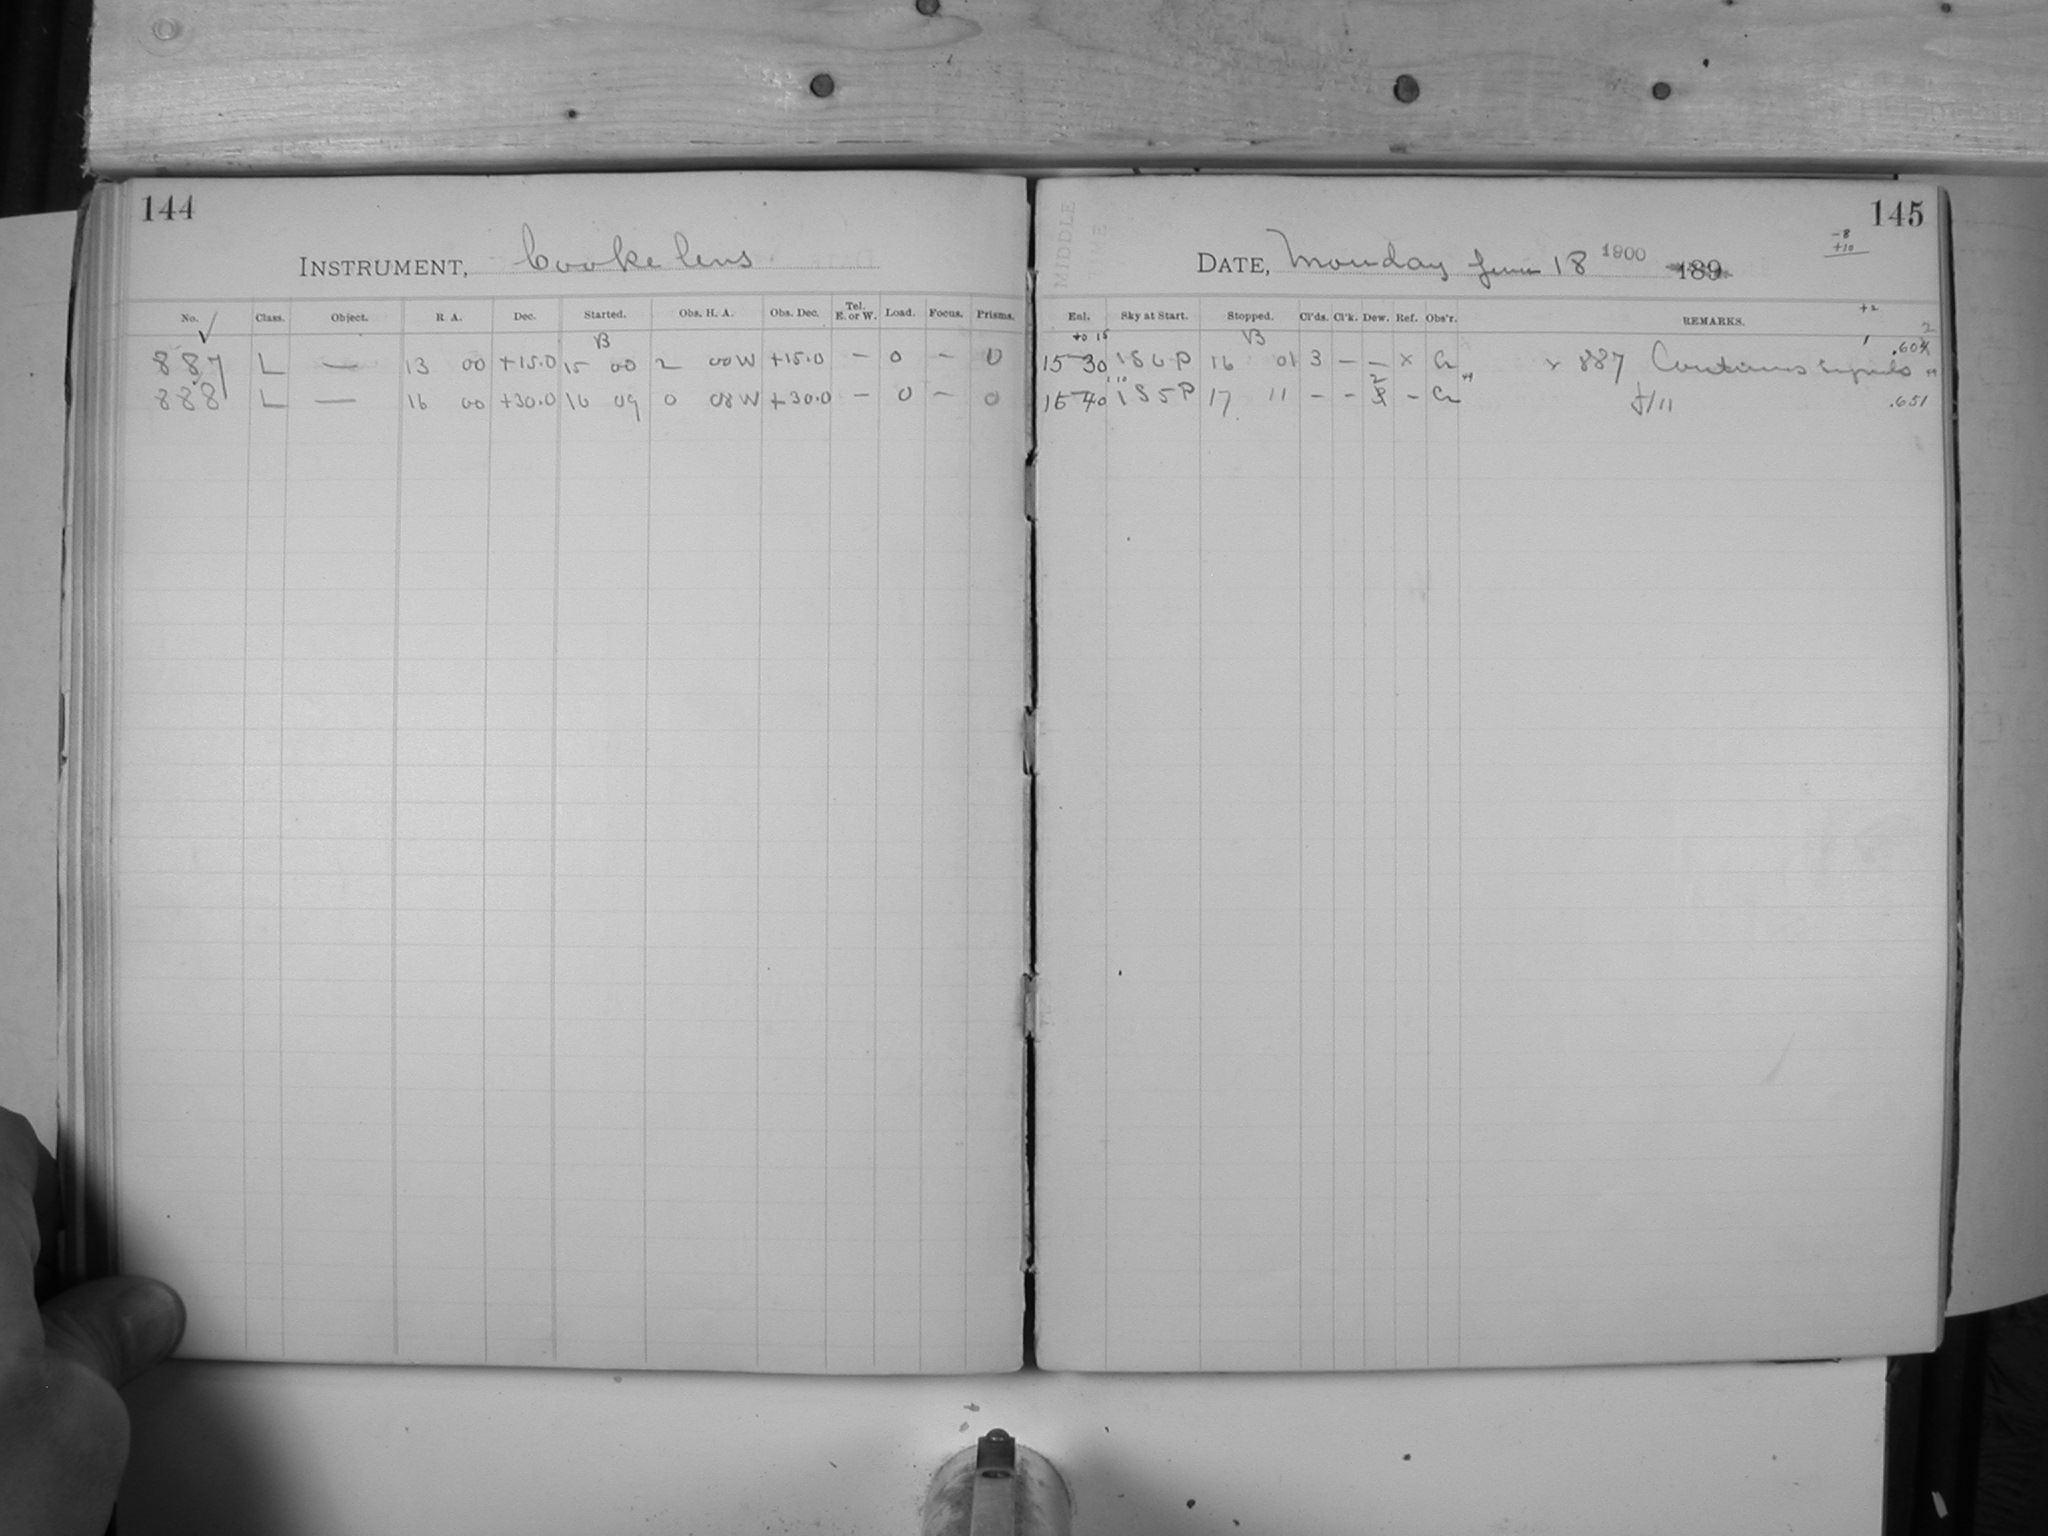 144
INSTRUMENT, Cooke lens
No. Class. Object. R A. Dec. Started. Obs. H. A. Obs. Dec. Tel. E. or W. Load. Focus. Prisms.
B
887 L — 13 00 +15.0 15 00 2 00W +15.0 — 0 — 0
888 L — 16 00 +30.0 16 09 0 08W +30.0 — 0 — 0
MIDDLE
145
-8
+10
DATE, Monday June 18 1900 189
+2
Exl. Sky at Start. Stopped. Cl'ds. Cl'k. Dew. Ref. Obs'r. REMARKS.
+0 15 B 2
15 30 1 8 6 P 16 01 3 — — x x 887 Contains signals
1 8 5 P 17 11 — — 2 — f/11 .651